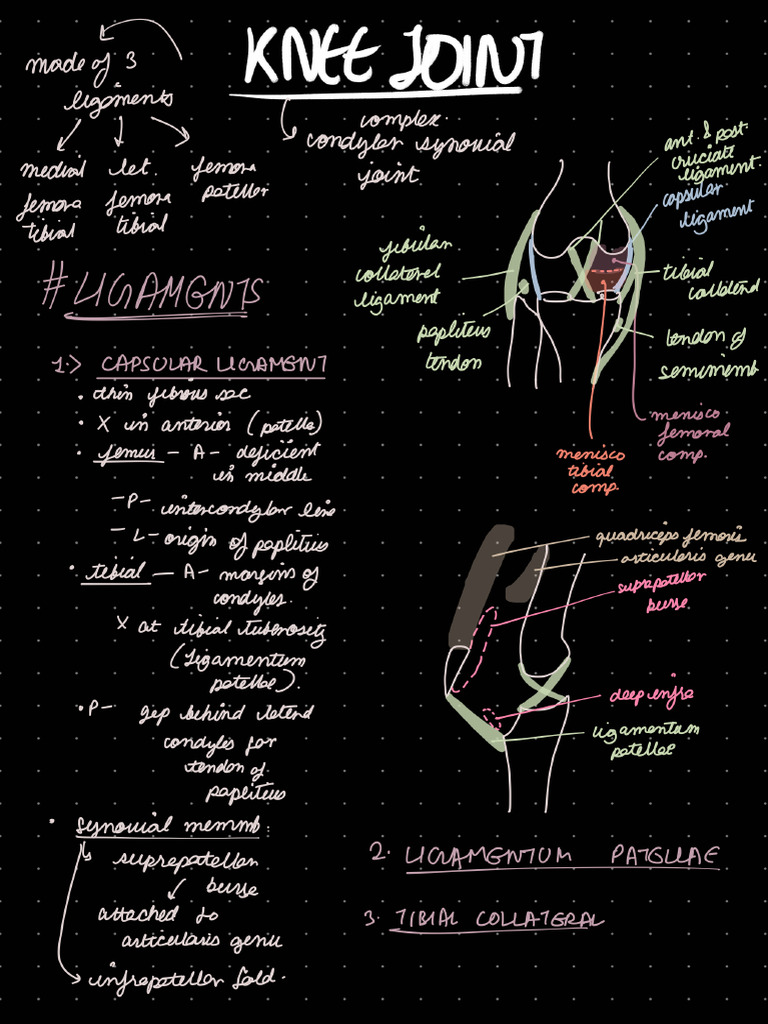 KNEE JOINT
made of 3
ligaments
medial
femora
tibial
lat.
femora
tibial
femora
patellar
complex
condylar synovial
joint
ant. & post.
cruciate
ligament.
capsular
ligament
fibular
collateral
ligament
popliteus
tendon
tibial
collateral
tendon of
semimemb
menisco
femoral
comp.
menisco
tibial
comp.
# LIGAMENTS
1.> CAPSULAR LIGAMENT
• thin fibrous sac
• X in anterior (patella)
• femur - A - deficient
in middle
- P - intercondylar line
- L - origin of popliteus
• tibial - A - margins of
condyles.
X at tibial tuberosity
(ligamentum
patellae).
• P - gap behind lateral
condyles for
tendon of
popliteus
• synovial memmb:
suprapatellar
burse
attached to
articularis genu
infrapatellar fold.
quadriceps femoris
articularis genu
suprapatellar
burse
deep infra
ligamentum
patellae
2. LIGAMENTUM PATELLAE
3. TIBIAL COLLATERAL